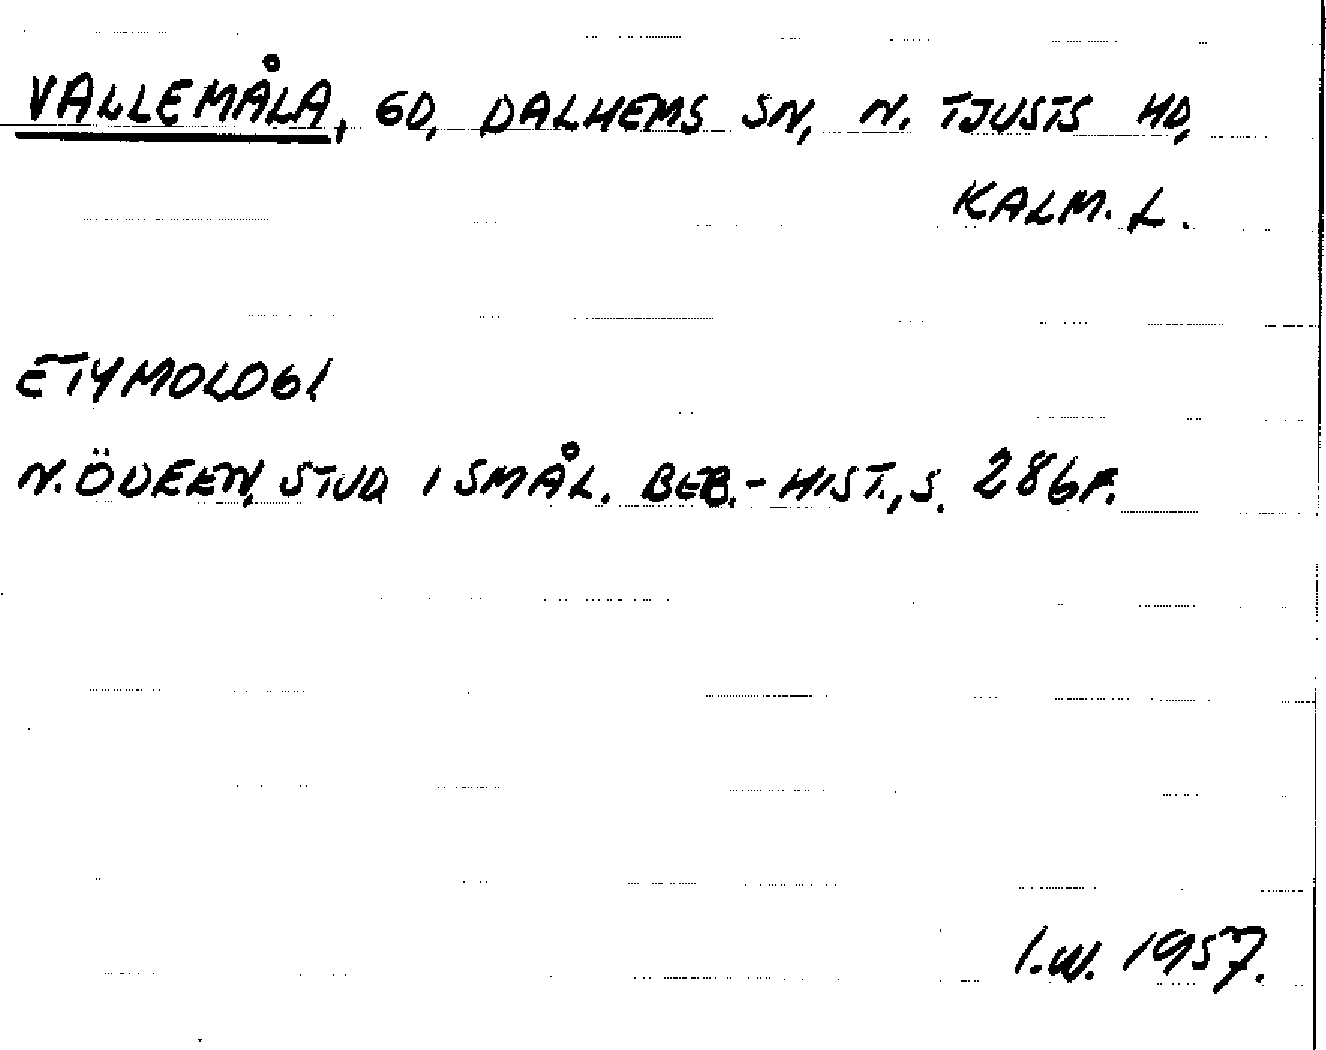 VALLEMÅLA, GD, DALHEMS SN, N. TJUSTS HD,
KALM. L.
ETYMOLOGI
N. ÖDEEN, STUD I SMÅL. BEB.-HIST., S. 286F.
I.W. 1957.